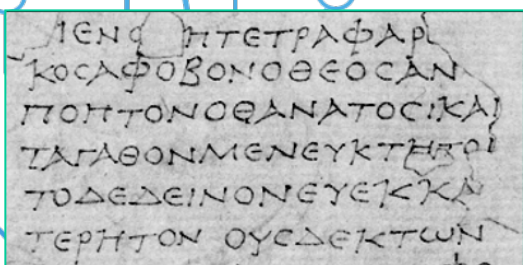 ΙΕΝΟ ΠΤΕΤΡΑΦΑΡ
ΚΟϹΑΦΟΒΟΝΟΘΕΟϹΑΝ
ΠΟΠΤΟΝΟΘΑΝΑΤΟϹΙΚΑΙ
ΤΑΓΑΘΟΝΜΕΝΕΥΚΤΗΤΟΙ
ΤΟΔΕΔΕΙΝΟΝΕΥΕΚΚΑ
ΤΕΡΗΤΟΝ ΟΥϹΔΕΚΤΩΝ